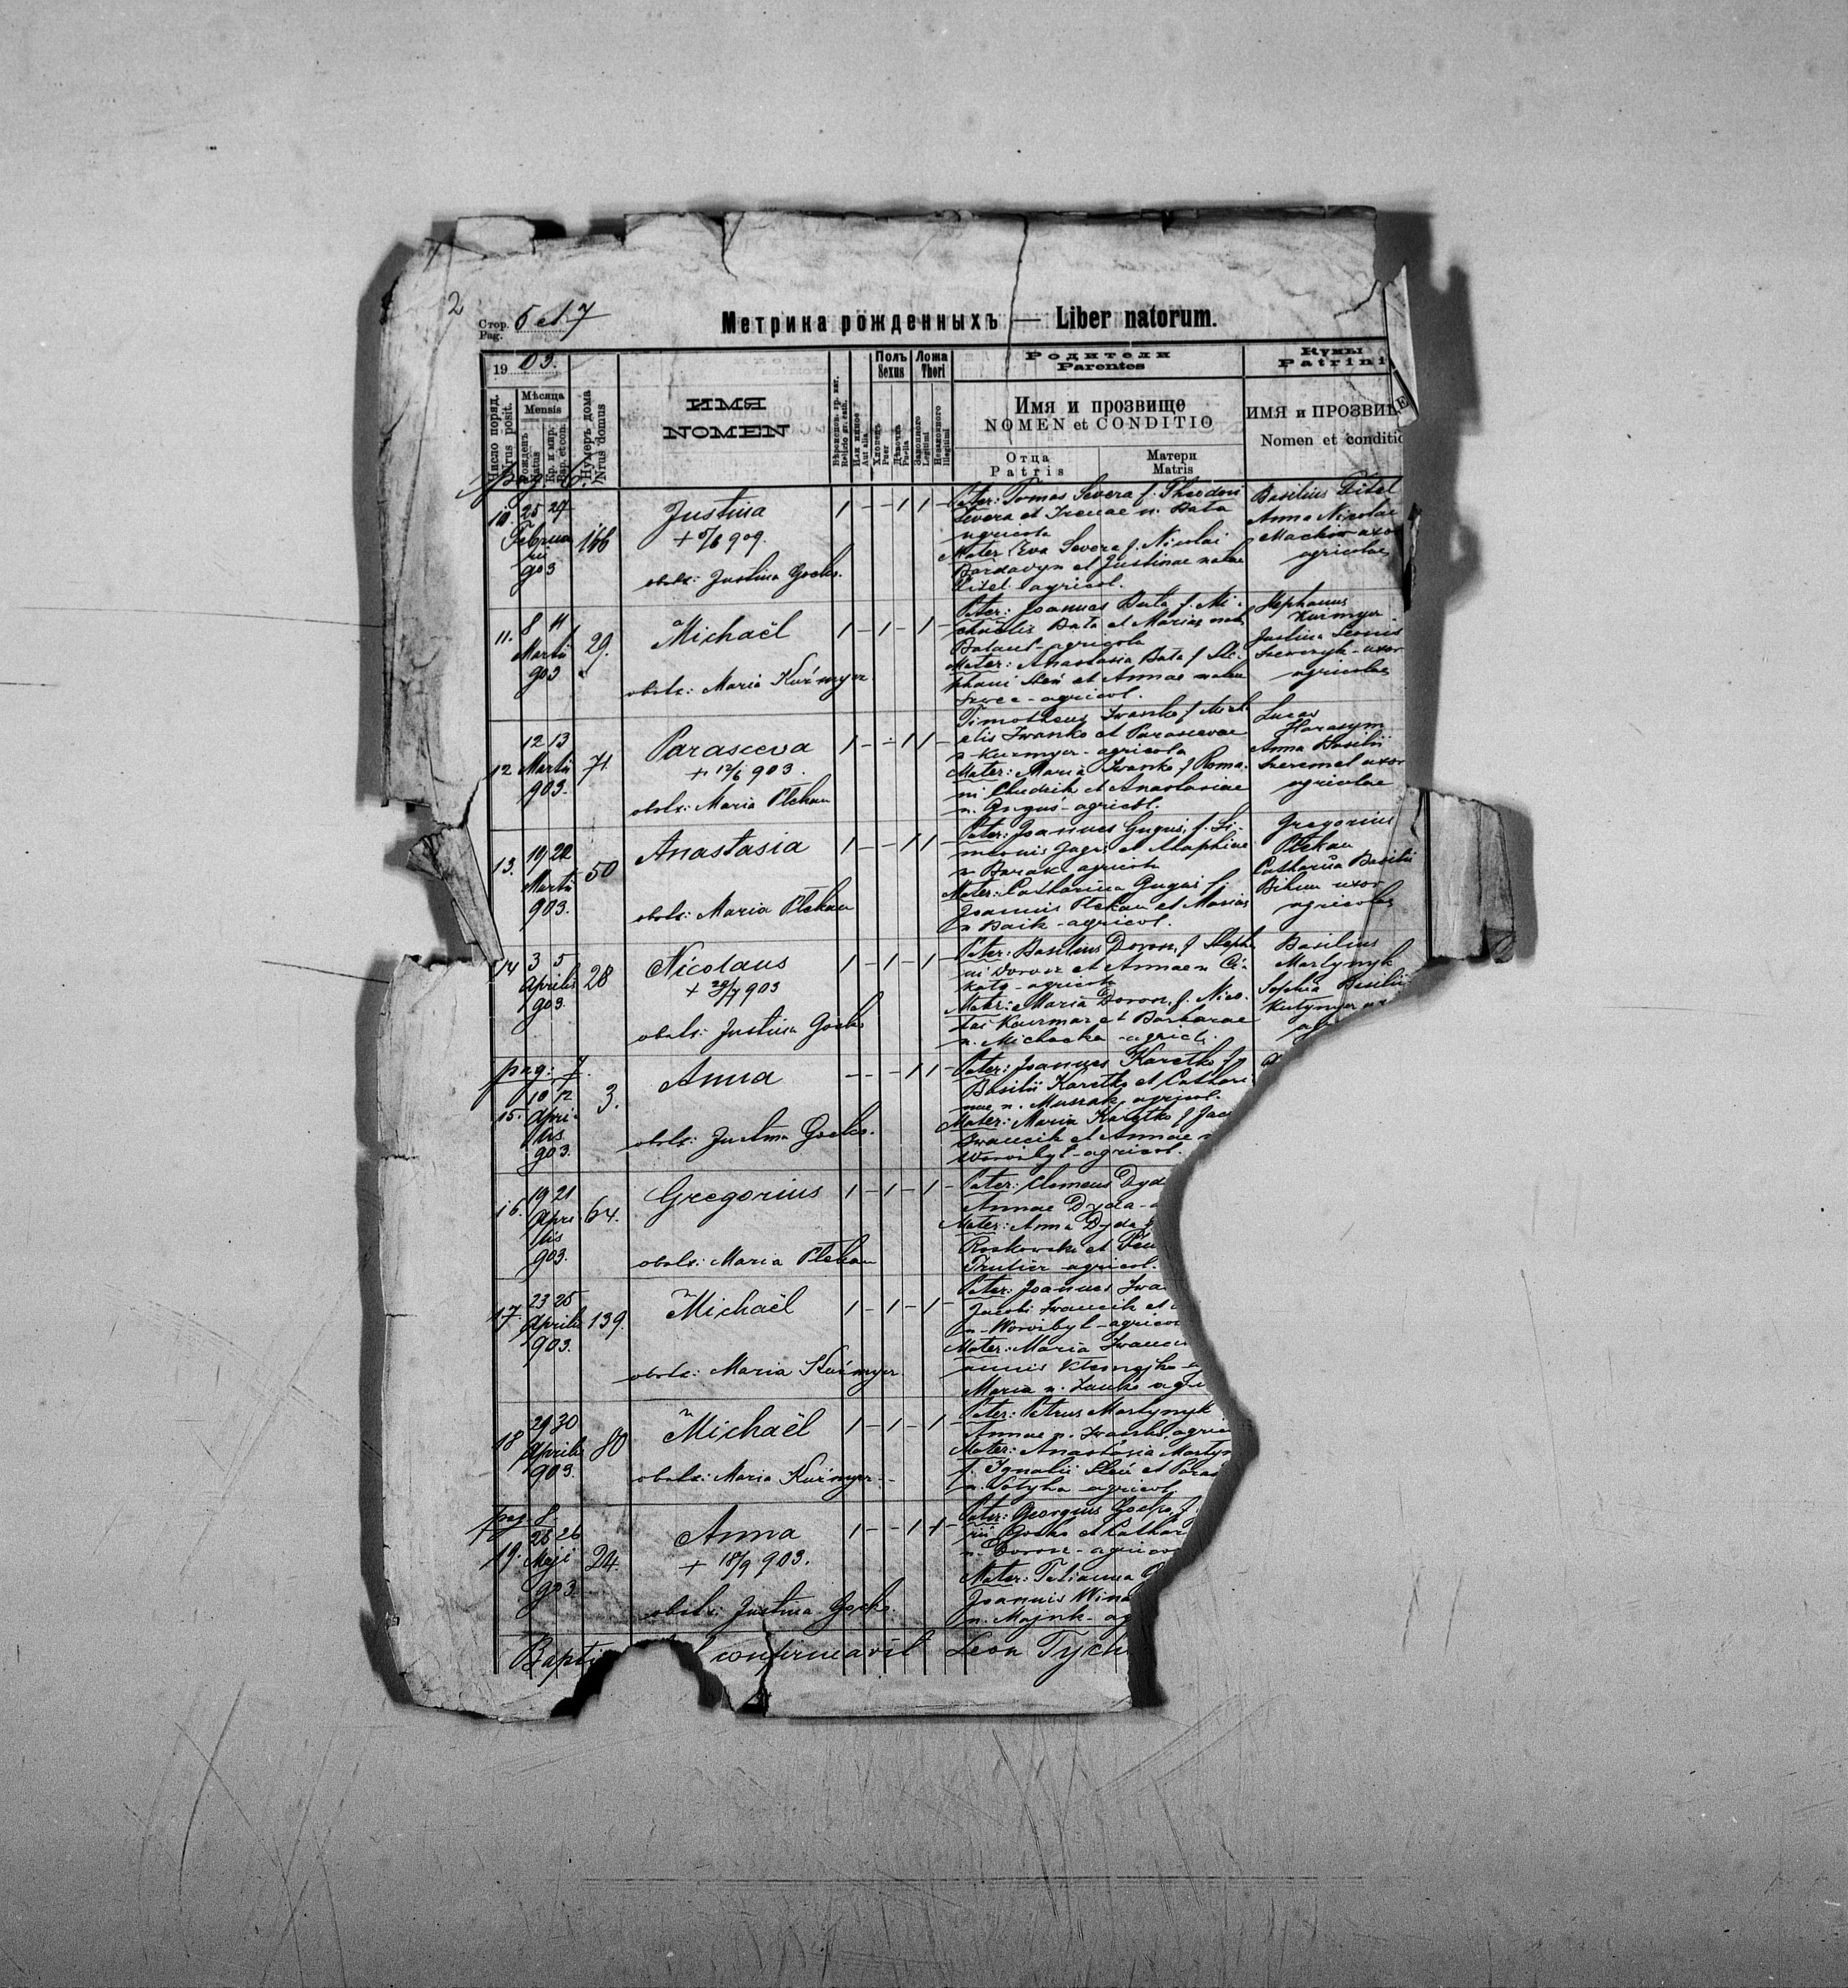 2
Стор. Pag. 6 et 7
Метрика рожденныхъ — Liber natorum.
1903.
Число поряд. Nrus posit.
Мѣсяца Mensis
Рожденъ Natus
Кр. и мѵр. Bap. et con.
Нумеръ дома Nrus domus
ИМЯ
NOMEN
Религіо gr. cath.
Или инное Aut alia
Полъ Sexus
Хлопецъ Puer
Дѣвочка Puella
Ложа Thori
Законного Legitimi
Незаконного Illegitimi
Родители
Parentes
Имя и прозвище
NOMEN et CONDITIO
Отца Patris
Матери Matris
Кумы
Patrini
ИМЯ и ПРОЗВИ
Nomen et conditio
10. 25 27 Februa rii 903
166
Justina
+ 909.
obste: Justina Gocko.
1 - - 1 1 -
Pater: Tomas Severa f. Theodori
Severa et Irenae n. Bata
agricola
Mater Eva Severa f. Nicolai
Bardavyn et Justinae natae
Ditel agricol.
Basilius Ditel
Anna Nicolai
Machow uxor
agricolae
11. 8 11 Martii 903
29.
Michaël
obste: Maria Kuśmyer
1 - 1 - 1 -
Pater: Joannes Bata f. Mi-
chaelis Bata et Mariae nat
agricola
Mater: Anastasia Bata f. Ste-
phani Steń et Annae natae
Szwec - agricol.
Stephanus
Kuśmyer
Justina
Szewczyk - uxor
agricolae
12 12 13 Martii 903.
71
Parasceva
+ 12/6 903.
obste: Maria Plekan
1 - - 1 1 -
Timotheus Iwanko f. Mich
elis Iwanko et Parascevae
n Kuzmyer - agricola
Mater: Maria Iwanko f Roma-
ni Chudzik et Anastasiae
n. Guguś - agricol.
Lucas
Harasym
Anna Basilii
Szeremet uxor
agricolae
13. 19 22 Martii 903.
50
Anastasia
obste: Maria Plekan
1 - - 1 1 -
Pater: Joannes Guguś, f. Si-
meonis Guguś et Ahaphiae
n Baran agricola
Mater: Catharina Guguś f.
Joannis Plekan et Mariae
n Baik - agricol.
Gregorius
Plekan
Catharina Basilii
Bihun uxor
agricolae
14 3 5 Aprilis 903.
28
Nicolaus
+ 29/7 903
obste: Justina Gocko
1 - 1 - 1 -
Pater: Basilius Dorosz, f Steph
ni Dorosz et Annae n Ci-
kało - agricola
Mater: Maria Dorosz, f. Nico-
lai Kaczmar et Barbarae
n. Michocka - agricol.
Basilius
Martynyk
Sophia Basilii
pag: 7.
15. 10 12 Apri- lis 903.
3.
Anna
obste: Justina Gocko.
- - - 1 1 -
Pater: Joannes Karetko f
Basilii Karetko et Cathari
nae n. Mussak agricol.
Mater: Maria Karetko f Jac
Iwancik et Annae n
Worobyl - agricol.
16. 19 21 Apri lis 903.
64.
Gregorius
obste: Maria Plekan
1 - 1 - 1 -
Pater: Clemens Dyd
Annae Dyda -
Mater: Anna Dyda f
Roskowski et
agricol.
17. 23 25 Aprilis 903.
139.
Michaël
obste: Maria Kuśmyer
1 - 1 - 1 -
Pater: Joannes Iwa
Jacobi Iwancik et
n - Worobyl - agricol
Mater: Maria Iwanc
annis Klemejko
Maria n. Zańko agri
18 29 30 Aprilis 903.
80
Michaël
obste: Maria Kuśmyer -
1 - 1 - 1
Pater: Petrus Martynyk
Annae n. Iwanko, agric
Mater: Anastasia Martyn
f. Ignatii Steń et Paras
n. Sotyha agricol.
pag. 8.
19. 26 26 Maji 903.
24.
Anna
+ 18/9 903.
obste: Justina Gocko.
1 - - 1 1 -
Pater: Georgius Gocko, f.
rii Gocko et Cathar
n. Dorosz - agricol
Mater: Tatianna G
Joannis Wina
n. Majnk - ag
Bapti confirmavit Leon Tych